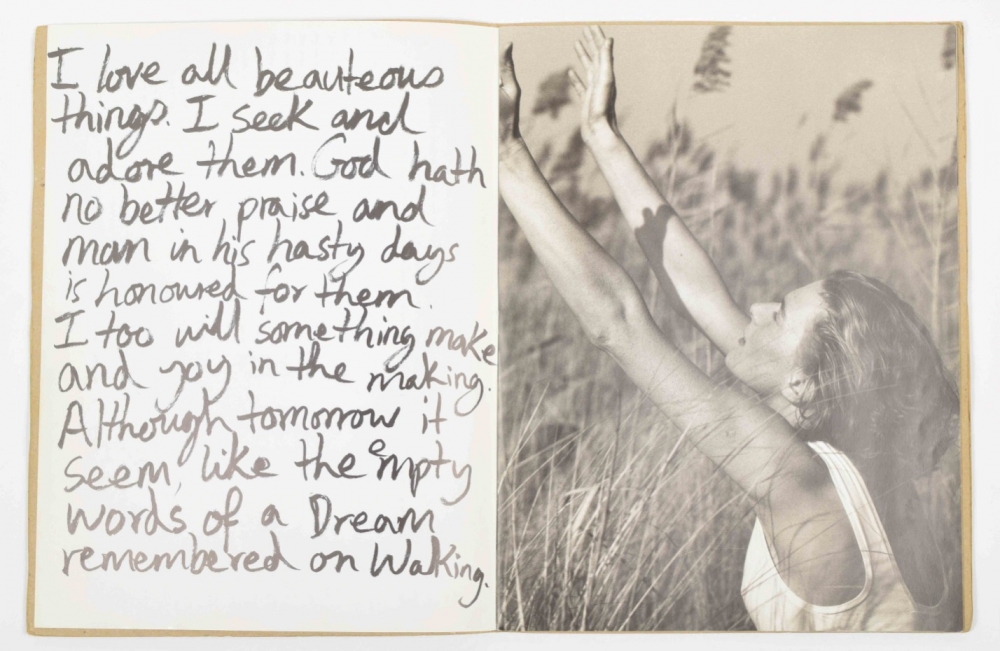 I love all beauteous
things. I seek and
adore them. God hath
no better praise and
man in his hasty days
is honoured for them.
I too will something make
and joy in the making.
Although tomorrow it
seem, like the empty
words of a Dream
remembered on Waking.